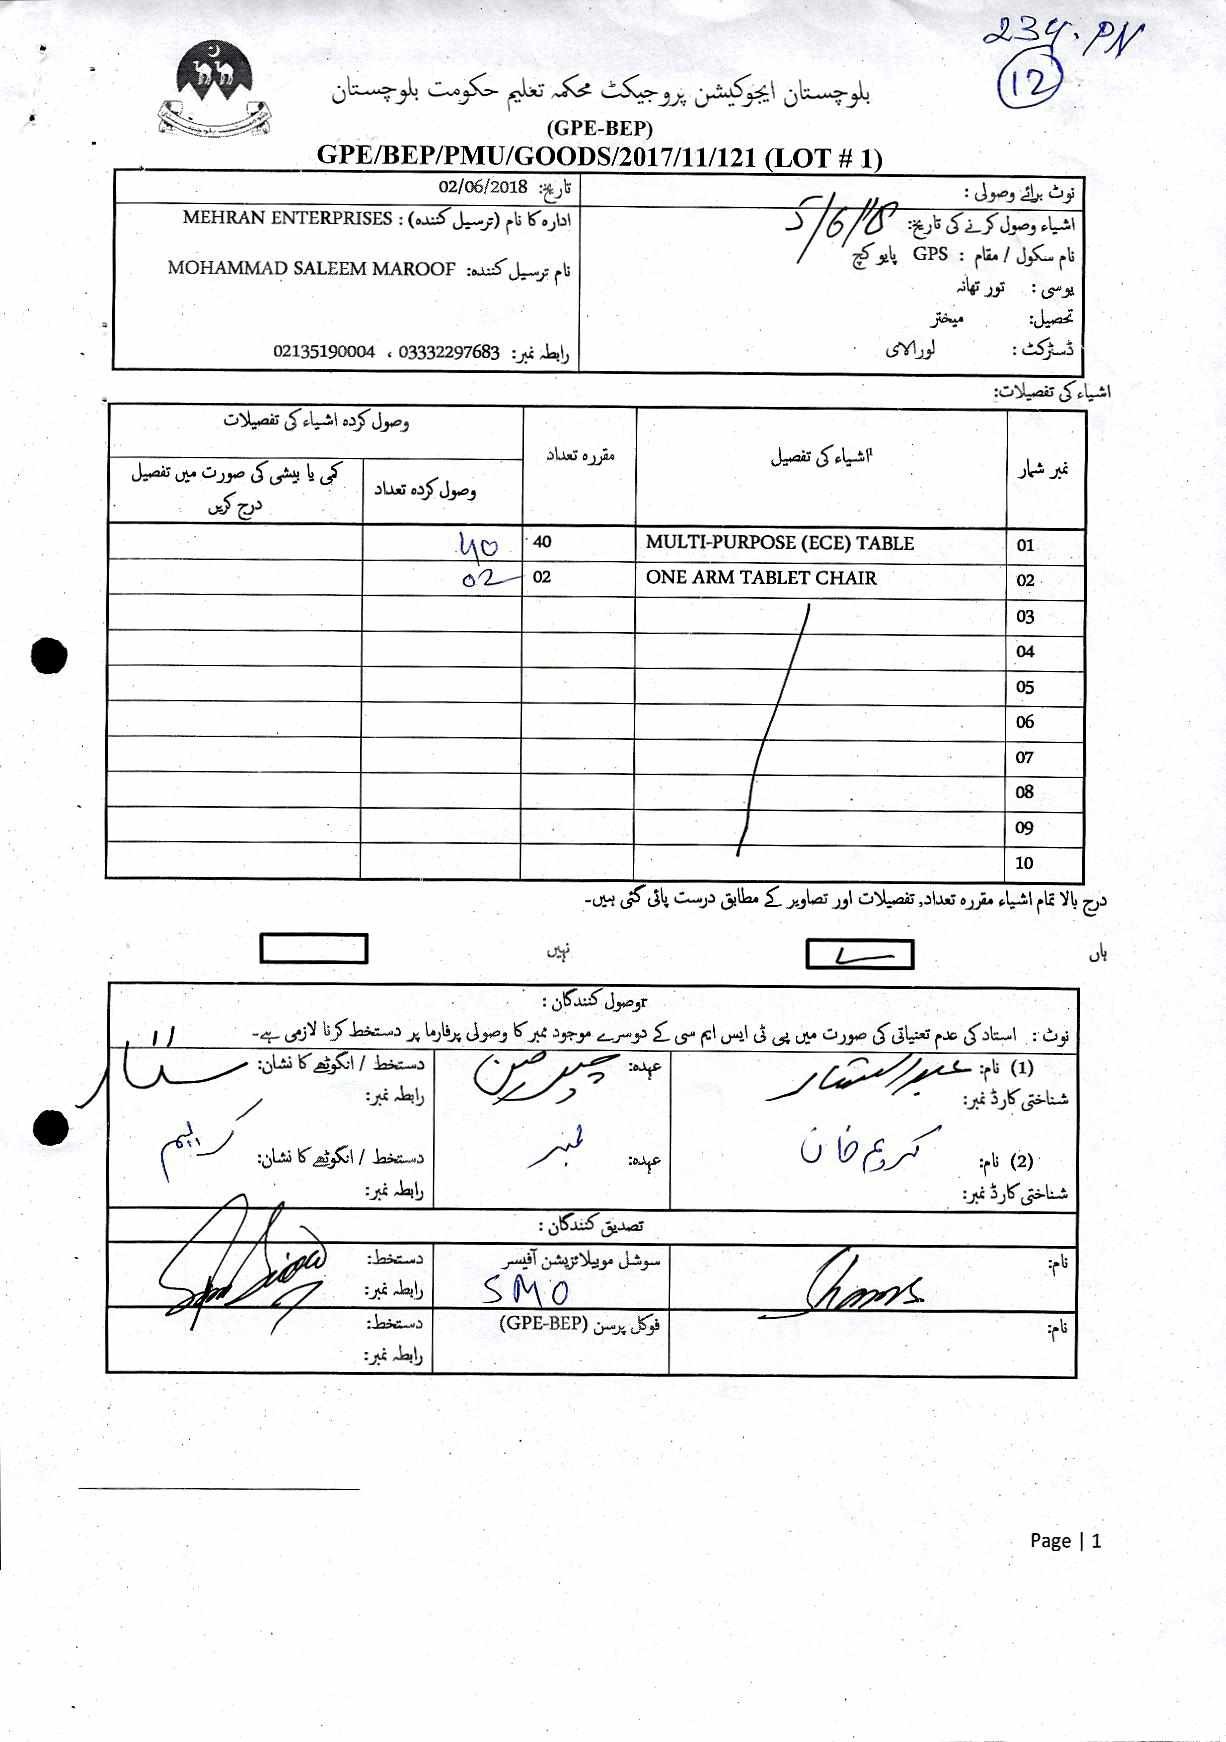 234. PN
12
بلوچستان ایجوکیشن پروجیکٹ محکمہ تعلیم حکومت بلوچستان
(GPE-BEP)
GPE/BEP/PMU/GOODS/2017/11/121 (LOT # 1)
نوٹ برائے وصولی :
اشیاء وصول کرنے کی تاریخ: 5/6/18
نام سکول / مقام : GPS پایو کچ
یوسی : تور تھانہ
تحصیل: میختر
ڈسٹرکٹ : لورالای
تاریخ: 02/06/2018
ادارہ کا نام (ترسیل کنندہ) : MEHRAN ENTERPRISES
نام ترسیل کنندہ: MOHAMMAD SALEEM MAROOF
رابطہ نمبر: 03332297683 ، 02135190004
اشیاء کی تفصیلات:
نمبر شمار اشیاء کی تفصیل مقررہ تعداد وصول کردہ اشیاء کی تفصیلات
وصول کردہ تعداد کمی یا بیشی کی صورت میں تفصیل درج کریں
01 MULTI-PURPOSE (ECE) TABLE 40 40
02 ONE ARM TABLET CHAIR 02 02
03
04
05
06
07
08
09
10
درج بالا تمام اشیاء مقررہ تعداد, تفصیلات اور تصاویر کے مطابق درست پائی گئی ہیں۔
ہاں نہیں
وصول کنندگان :
نوٹ : استاد کی عدم تعنیاتی کی صورت میں پی ٹی ایس ایم سی کے دوسرے موجود ممبر کا وصولی پرفارما پر دستخط کرنا لازمی ہے۔
(1) نام: عبدالستار عہدہ: چیرمین دستخط / انگوٹھے کا نشان: ستار
شناختی کارڈ نمبر: رابطہ نمبر:
(2) نام: کریم خان عہدہ: ممبر دستخط / انگوٹھے کا نشان: کریم
شناختی کارڈ نمبر: رابطہ نمبر:
تصدیق کنندگان :
نام: سوشل موبیلائزیشن آفیسر دستخط:
SMO رابطہ نمبر:
نام: فوکل پرسن (GPE-BEP) دستخط:
رابطہ نمبر:
Page | 1